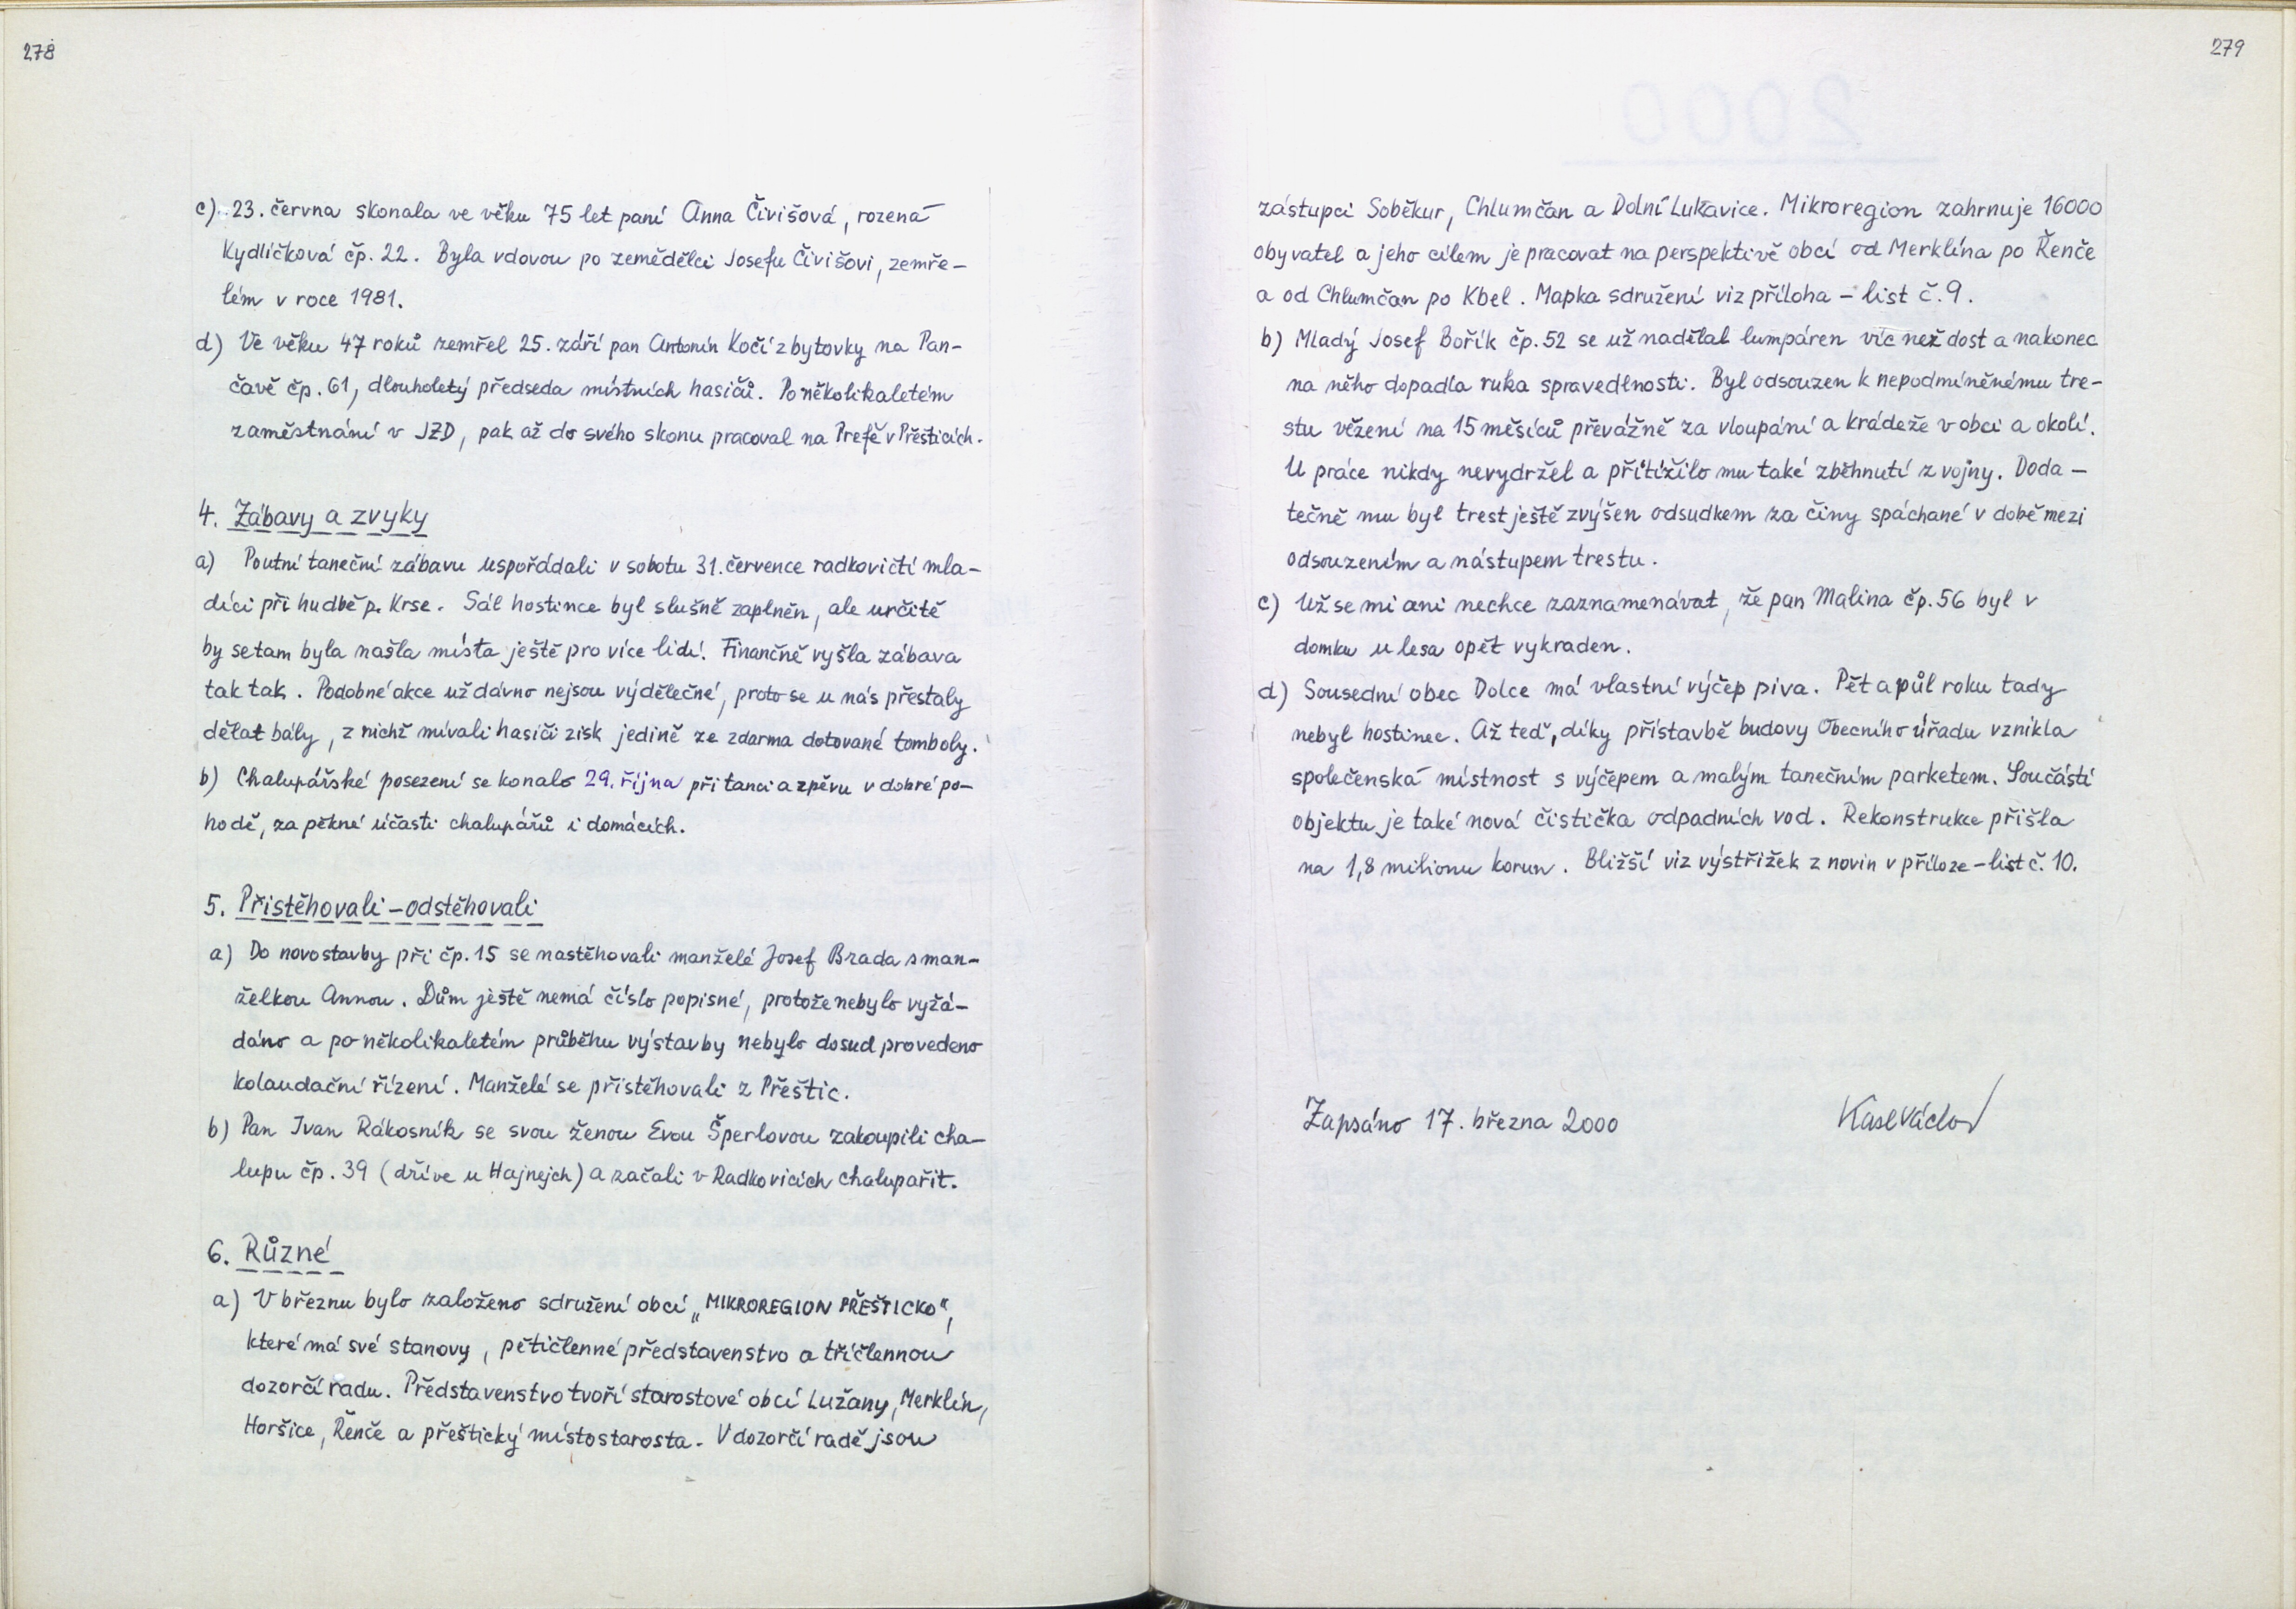 278
c) 23. června skonala ve věku 75 let paní Anna Čivišová, rozená
Kydlíčková čp. 22. Byla vdovou po zemědělci Josefu Čivišovi, zemře-
lém v roce 1981.
d) Ve věku 47 roků zemřel 25. září pan Antonín Kočí z bytovky na Pan-
čavě čp. 61, dlouholetý předseda místních hasičů. Po několikaletém
zaměstnání v JZD, pak až do svého skonu pracoval na Prefě v Přešticích.
4. Zábavy a zvyky
a) Poutní taneční zábavu uspořádali v sobotu 31. července radkovičtí mla-
díci při hudbě p. Krse. Sál hostince byl slušně zaplněn, ale určitě
by se tam byla našla místa ještě pro více lidí. Finančně vyšla zábava
tak tak. Podobné akce už dávno nejsou výdělečné, proto se u nás přestaly
dělat bály, z nichž mívali hasiči zisk jedině ze zdarma dotované tomboly.
b) Chalupářské posezení se konalo 29. října při tanci a zpěvu v dobré po-
hodě, za pěkné účasti chalupářů i domácích.
5. Přistěhovali - odstěhovali
a) Do novostavby při čp. 15 se nastěhovali manželé Josef Brada s man-
želkou Annou. Dům ještě nemá číslo popisné, protože nebylo vyžá-
dáno a po několikaletém průběhu výstavby nebylo dosud provedeno
kolaudační řízení. Manželé se přistěhovali z Přeštic.
b) Pan Ivan Rákosník se svou ženou Evou Šperlovou zakoupili cha-
lupu čp. 39 (dříve u Hajnejch) a začali v Radkovicích chalupařit.
6. Různé
a) V březnu bylo založeno sdružení obcí „MIKROREGION PŘEŠTICKO",
které má své stanovy, pětičlenné představenstvo a tříčlennou
dozorčí radu. Představenstvo tvoří starostové obcí Lužany, Merklín,
Horšice, Řenče a přeštický místostarosta. V dozorčí radě jsou
279
zástupci Soběkur, Chlumčan a Dolní Lukavice. Mikroregion zahrnuje 16000
obyvatel a jeho cílem je pracovat na perspektivě obcí od Merklína po Řenče
a od Chlumčan po Kbel. Mapka sdružení viz příloha - list č. 9.
b) Mladý Josef Bořík čp. 52 se už nadělal lumpáren víc než dost a nakonec
na něho dopadla ruka spravedlnosti. Byl odsouzen k nepodmíněnému tre-
stu vězení na 15 měsíců převážně za vloupání a krádeže v obci a okolí.
U práce nikdy nevydržel a přitížilo mu také zběhnutí z vojny. Doda-
tečně mu byl trest ještě zvýšen odsudkem za činy spáchané v době mezi
odsouzením a nástupem trestu.
c) Už se mi ani nechce zaznamenávat, že pan Malina čp. 56 byl v
domku u lesa opět vykraden.
d) Sousední obec Dolce má vlastní výčep piva. Pět a půl roku tady
nebyl hostinec. Až teď, díky přístavbě budovy Obecního úřadu vznikla
společenská místnost s výčepem a malým tanečním parketem. Součástí
objektu je také nová čistička odpadních vod. Rekonstrukce přišla
na 1,8 milionu korun. Bližší viz výstřižek z novin v příloze - list č. 10.
Zapsáno 17. března 2000 Kasl Václav